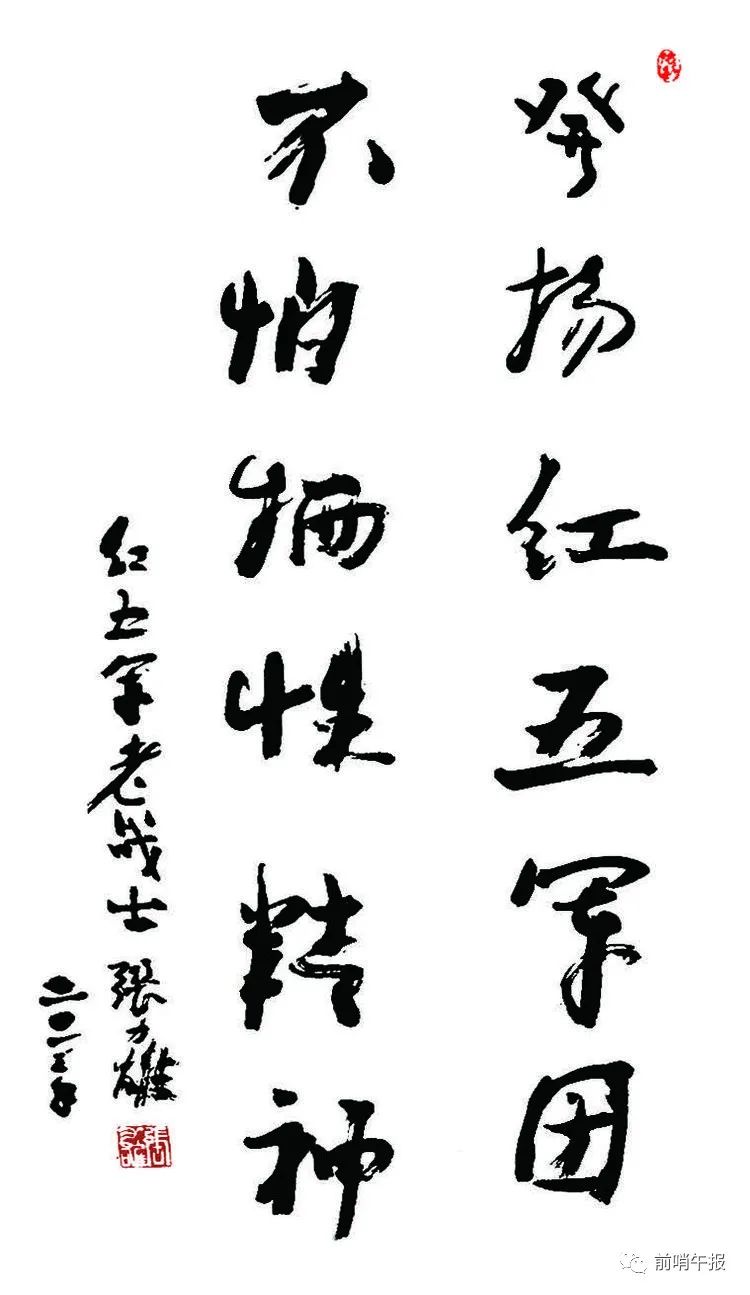 发扬红五军团
不怕牺牲精神
红五军老战士 張力雄
二〇一三年
前哨午报